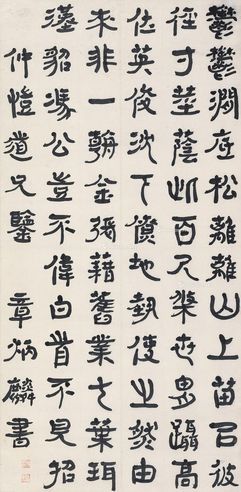 鬱鬱澗底松離離山上苗㠯彼
徑寸莖蔭此百尺條世冑躡高
位英俊沈下僚地勢使之然由
來非一朝金張藉舊業七葉珥
漢貂馮公豈不偉白首不見招
仲愷道兄鑒 章炳麟書